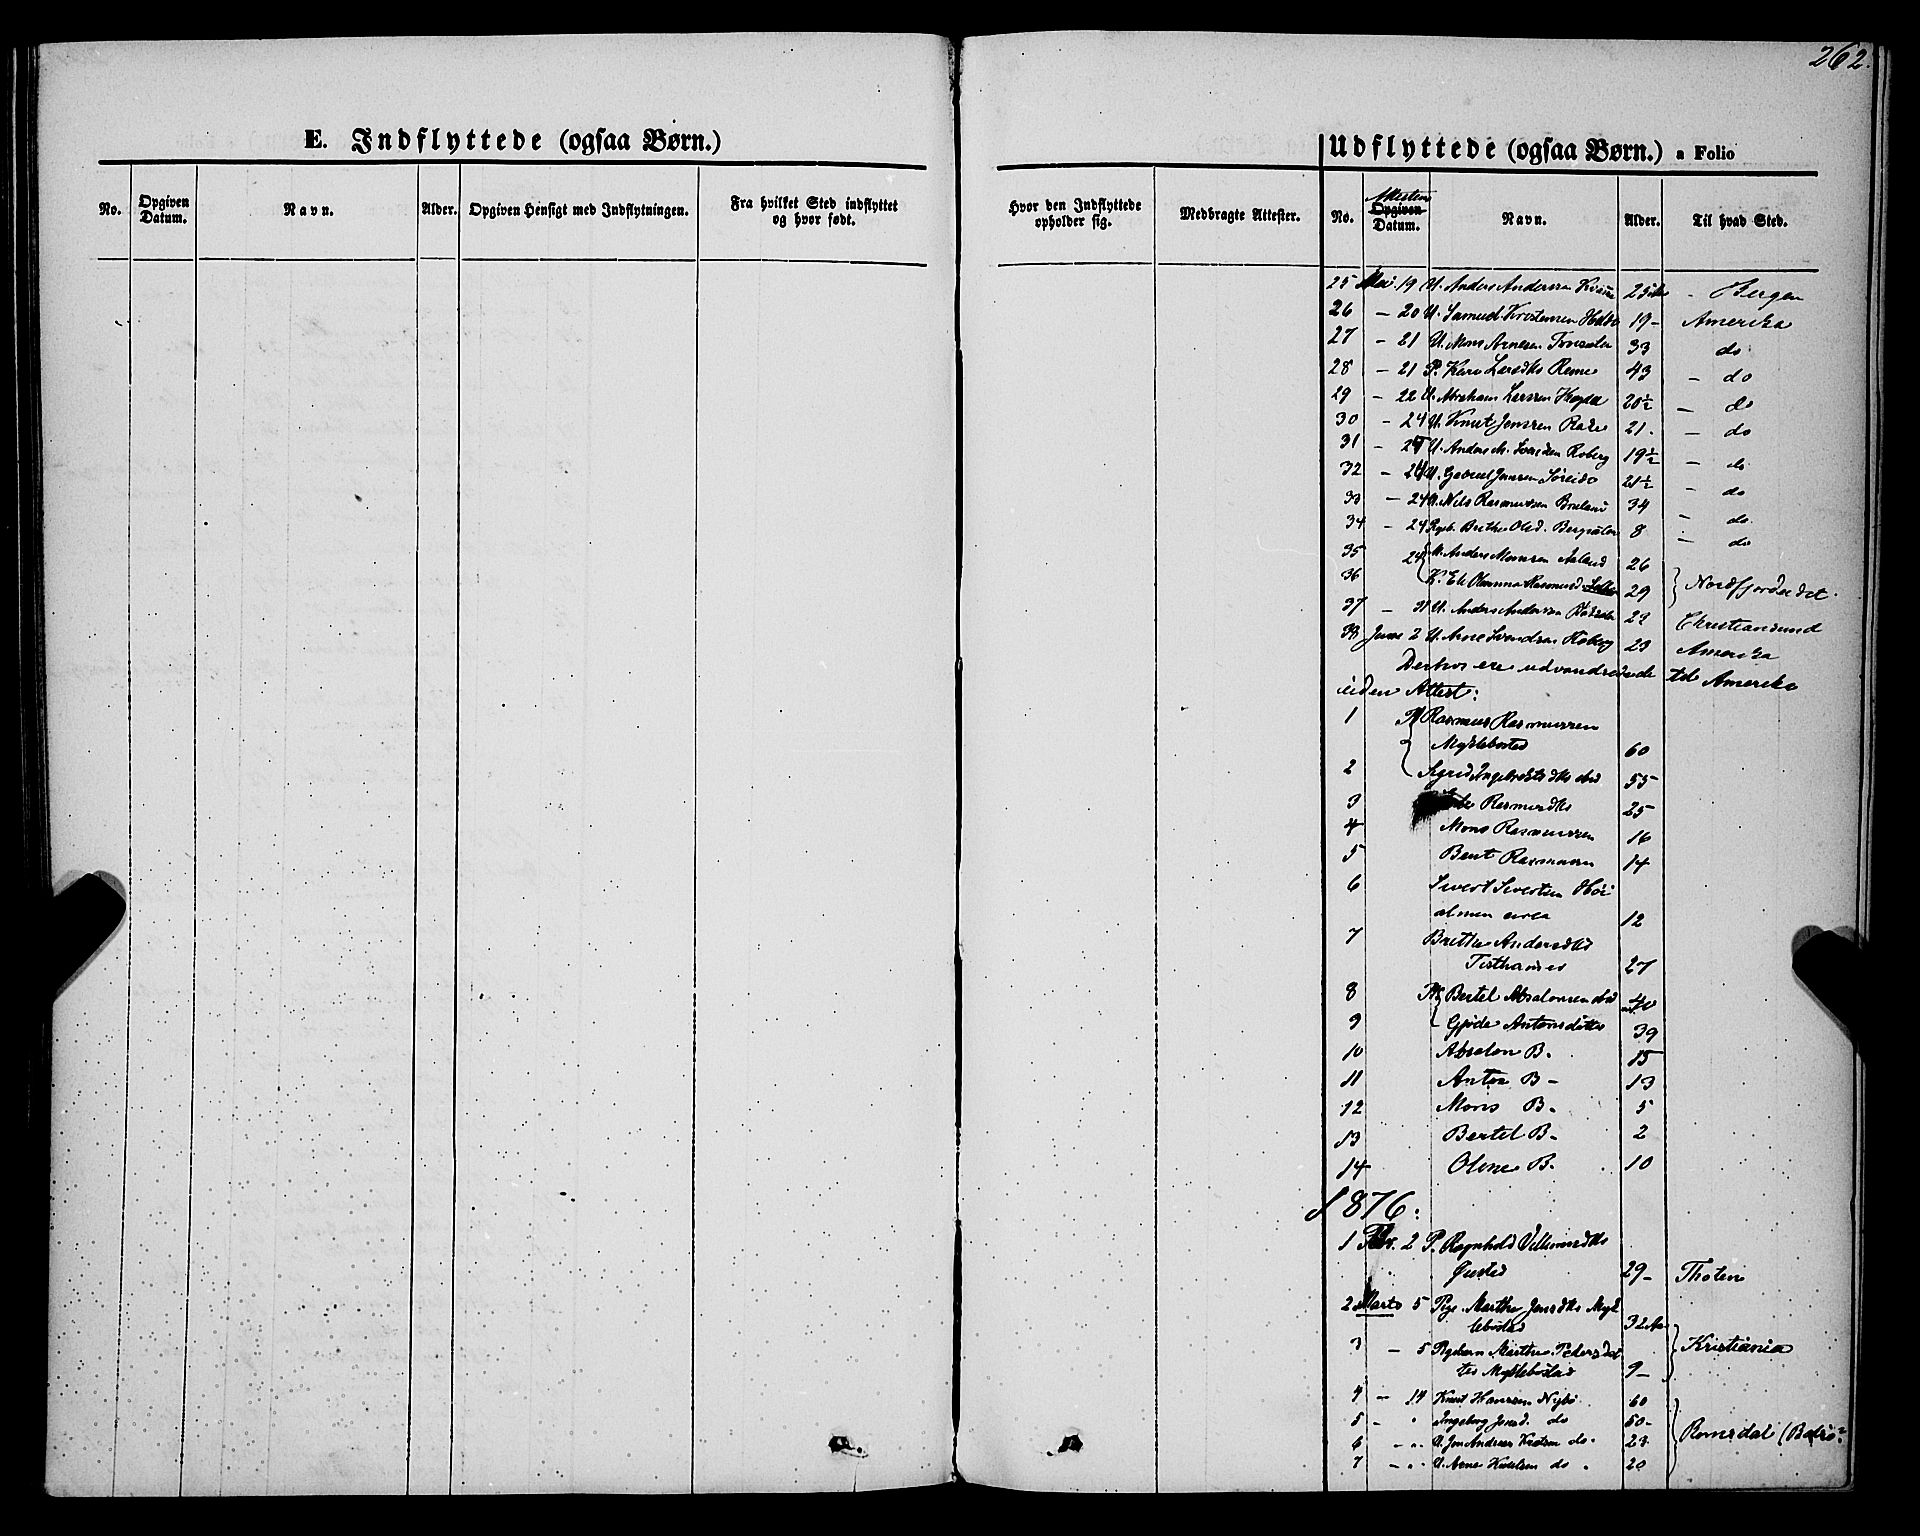 262.
E. Indflyttede (ogsaa Børn.)
No. Opgiven Datum. Navn. Alder. Opgiven Hensigt med Indflytningen. Fra hvilket Sted indflyttet og hvor født.
Hvor den Indflyttede opholder sig. Medbragte Attester.
Udflyttede (ogsaa Børn.) a Folio
No. Attestens Opgiven Datum. Navn. Alder. Til hvad Sted.
25 Mai 19 U. Anders Andersen 25 Aar - Bergen
26 - 20 U. Samuel 19 - Amerika
27 - 21 U. Mons Arnesen 33 do
28 - 21 P. Kari Larsdtr Reme 43 - do
29 - 22 U. Abraham Larsen 20½ - do
30 - 24 U. Knut Jonsen 21. - do
31 - 24 U. Anders Roberg 19½ - do
32 - 24 U. Gabriel Jansen 21½ - do
33 - 24 U. Nils Rasmussen 34 - do
34 - 24 Pgb. Brithe Olsd. 8 - do
35 24 U. Anders Monsen Aaland 26
36 K. Eli Olianna Rasmusd. 29 Nordfjordeidet.
37 - 31 U. Anders Andersen 22 Christiansund
38 Juni 2 U. Arne Svendsen Roberg 23 Amerika
Derhos ere udvandrede til Amerika
uden Attest:
1 Rasmus Rasmussen
Myklebostad 60
2 Sigrid Ingebrigtsdtr ibid 55
3 Rasmusdtr 25
4 Mons Rasmussen 16
5 Bent Rasmussen 14
6 Sivert Sivertsen
circa 12
7 Brithe Andersdtr
Tisthamer 27
8 Bertel Absalonsen ibid 40
9 Gjøde Antonsdatter 39
10 Absalon B. 15
11 Anton B - 13
12 Mons B. 5
13 Bertel B - 2
14 Oline B. 10
1876:
1 Febr. 2 P. Ragnhild Villumsdtr
Ørsted 29 - Thoten
2 Marts 5 Pige Marthe Jensdtr Myk
lebostad 32 Aar
3 - 5 Pigebarn Marthe Petersdat
ter Myklebostad 9 - Kristiania
4 - 14 Knut Hansen Nybø 60
5 - " Ingeborg Jonsd. do 50 -
6 - " U. Jon Andreas Knutsen do. 23 Romsdal
7 - " U. Arne Knutsen do. 20